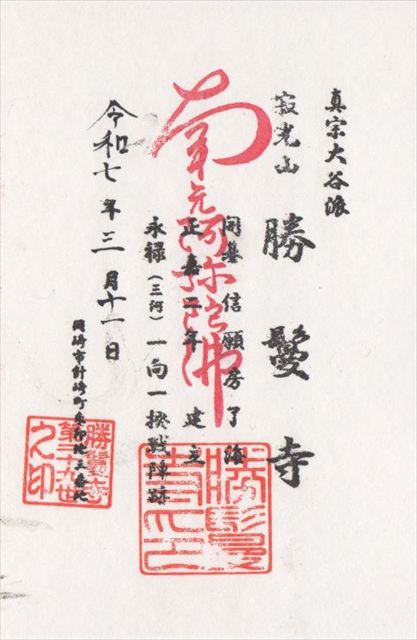 真宗大谷派
寂光山
勝鬘寺
開基信願房了海
正嘉二年建立
南无阿弥陀佛
永禄(三河)一向一揆戦陣跡
令和七年三月十一日
岡崎市針崎町朱印地三番地
勝鬘寺
之印